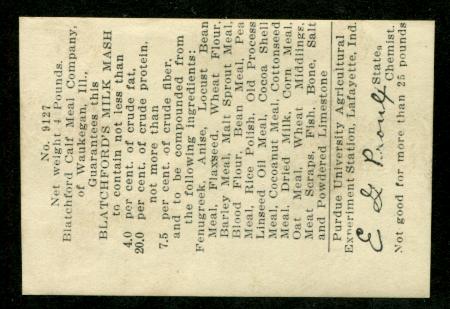 No. 9127
Net weight 4 Pounds.
Blatchford Calf Meal Company,
of Waukegan, Ill.,
Guarantees this
BLATCHFORD'S MILK MASH
to contain not less than
4.0 per cent. of crude fat,
20.0 per cent. of crude protein,
not more than
7.5 per cent. of crude fiber,
and to be compounded from
the following ingredients:
Fenugreek, Anise, Locust Bean
Meal, Flaxseed, Wheat Flour,
Barley Meal, Malt Sprout Meal,
Blood Flour, Bean Meal, Pea
Meal, Rice Polish, Old Process
Linseed Oil Meal, Cocoa Shell
Meal, Cocoanut Meal, Cottonseed
Meal, Dried Milk, Corn Meal,
Oat Meal, Wheat Middlings,
Meat Scraps, Fish, Bone, Salt
and Powdered Limestone
Purdue University Agricultural
Experiment Station, Lafayette, Ind.
E G Proulx State,
Chemist.
Not good for more than 25 pounds